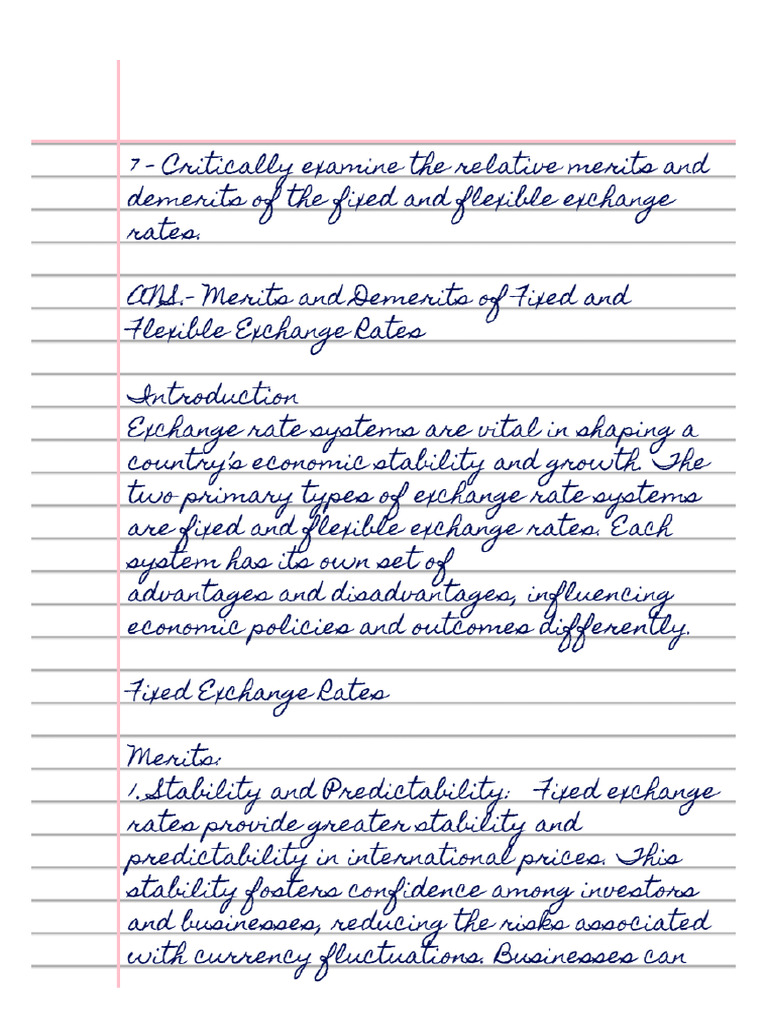 7 - Critically examine the relative merits and
demerits of the fixed and flexible exchange
rates.
ANS.- Merits and Demerits of Fixed and
Flexible Exchange Rates
Introduction
Exchange rate systems are vital in shaping a
country's economic stability and growth. The
two primary types of exchange rate systems
are fixed and flexible exchange rates. Each
system has its own set of
advantages and disadvantages, influencing
economic policies and outcomes differently.
Fixed Exchange Rates
Merits:
1. Stability and Predictability: Fixed exchange
rates provide greater stability and
predictability in international prices. This
stability fosters confidence among investors
and businesses, reducing the risks associated
with currency fluctuations. Businesses can